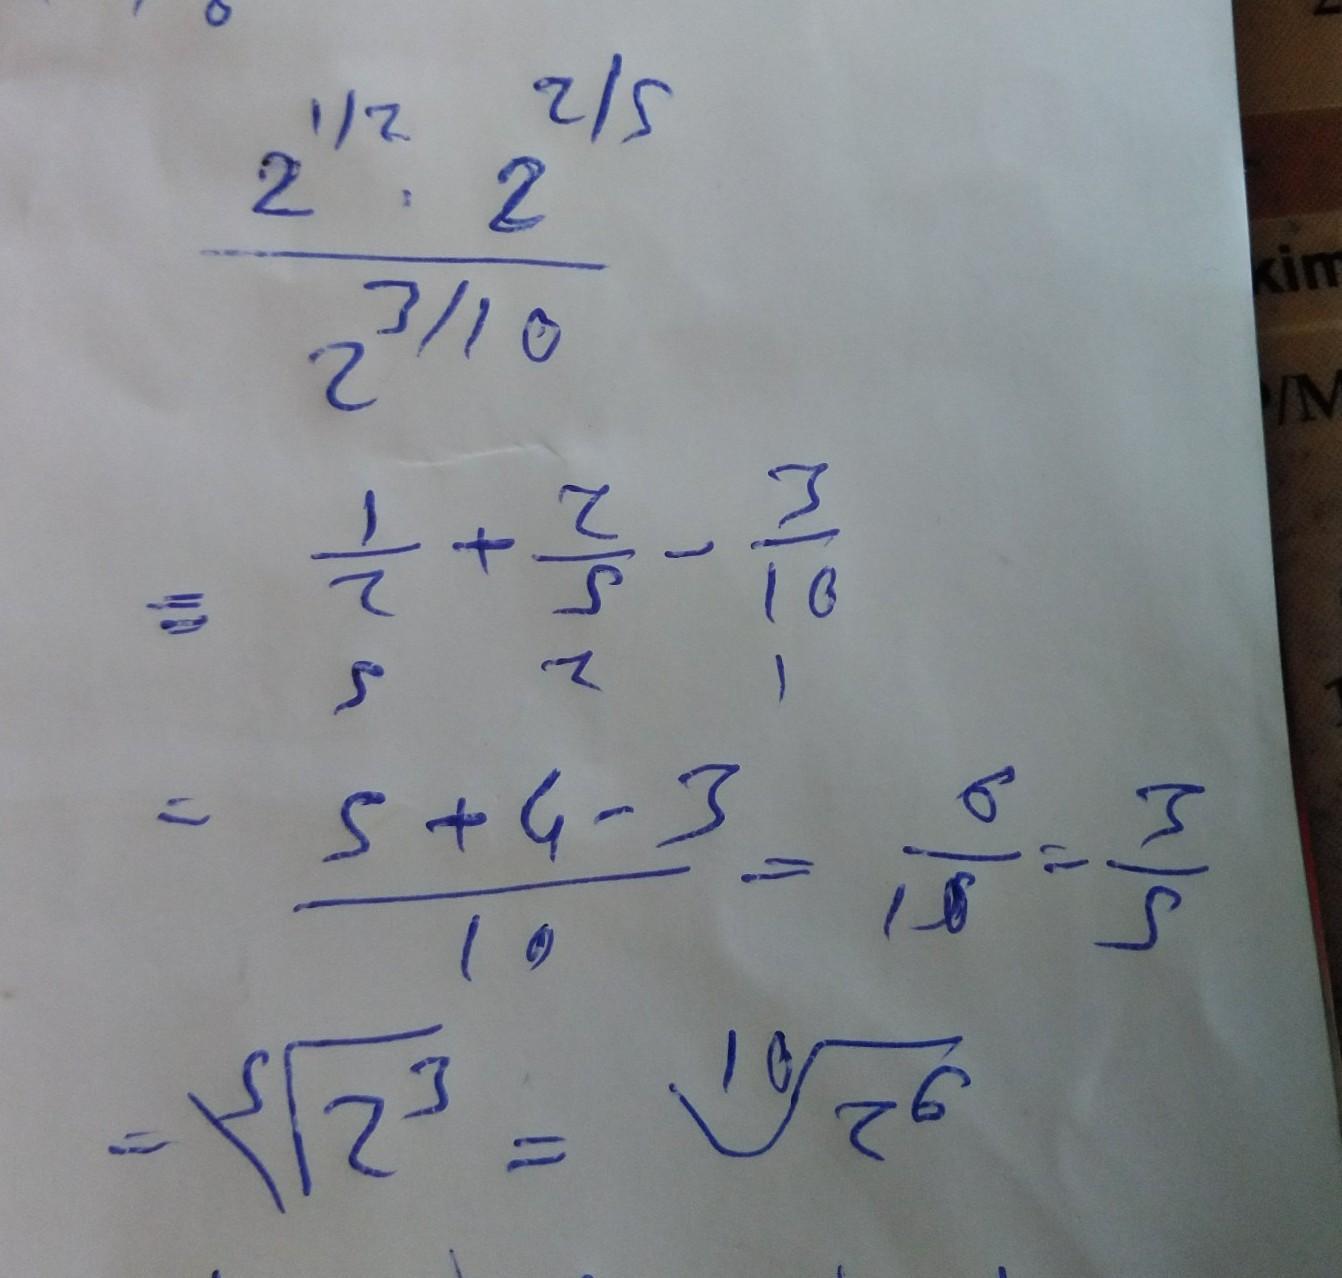 2^{1/2} . 2^{2/5}
2^{3/10}
= 1/2 + 2/5 - 3/10
5 2 1
= (5 + 4 - 3)/10 = 6/10 = 3/5
= ⁵√2³ = ¹⁰√2⁶
kim
/M